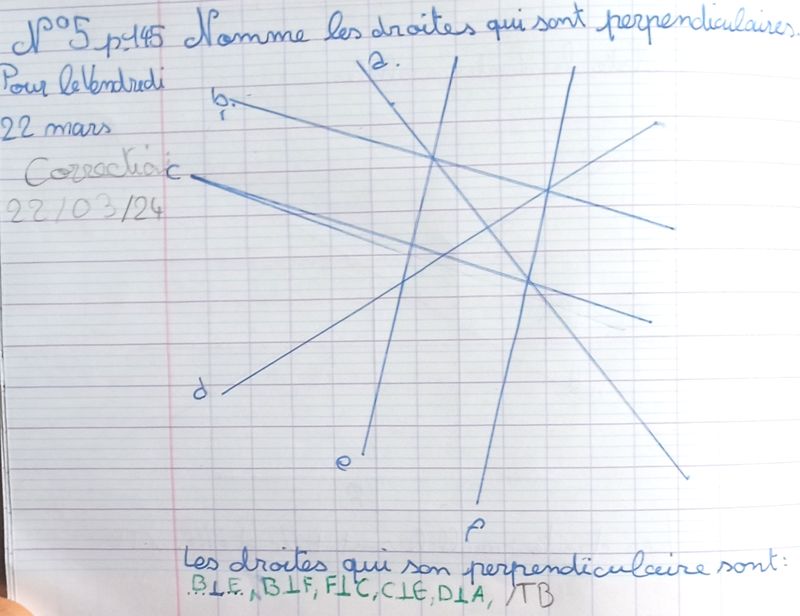 N°5 p.145 Nomme les droites qui sont perpendiculaires.
Pour le Vendredi
22 mars
Correction
22/03/24
a.
b.
c
d
e
f
Les droites qui son perpendiculaire sont:
B⊥E, B⊥F, F⊥C, C⊥E, D⊥A, /TB